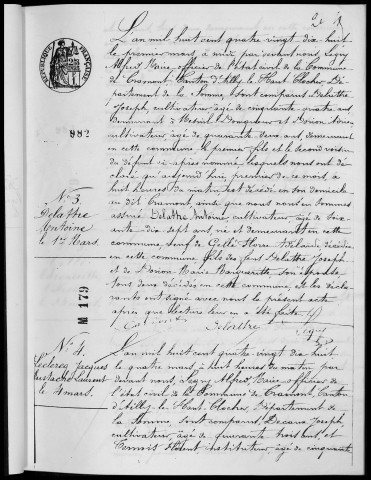 L'an mil huit cent quatre vingt dix huit
le premier mars, à par devant nous, Legry
Alfred, Maire, officier de l'état civil de la Commune
de Cramont, Canton d'Ailly-le-Haut-Clocher, Dé-
partement de la Somme, sont comparus Delattre
Joseph, cultivateur, âgé de cinquante quatre ans
demeurant à Mesnil-Domqueur et
cultivateur âgé de quarante deux ans, demeurant
en cette commune le premier fils et le second voisin
du défunt ci-après nommé, lesquels nous ont dé-
claré qu'aujourd'hui, premier de ce mois, à
huit heures du matin est décédé en son domicile
au dit Cramont, ainsi que nous nous en sommes
assuré, Delattre Antoine, cultivateur, âgé de soix-
ante-dix sept ans, né et demeurant en cette
commune, veuf de Adélaïde, décédée
en cette commune, fils des feus Delattre Joseph
et de Marie Marguerite, son épouse
tous deux décédés en cette commune, et les décla-
rants ont signé avec nous le présent acte
après que lecture leur en a été faite
Delattre
N° 3.
Delattre
Antoine
le 1er Mars.
982
M 179
N° 4.
Leclercq Jacques
Eustache Laurent
le 4 mars.
L'an mil huit cent quatre vingt dix huit
le quatre mars, à huit heures du matin par
devant nous, Legry Alfred, Maire, officier de
l'état civil de la Commune de Cramont, Canton
d'Ailly-le-Haut-Clocher, Département de
la Somme, sont comparus, Decaux Joseph,
cultivateur, âgé de quarante trois ans, et
Florent, instituteur, âgé de cinquante